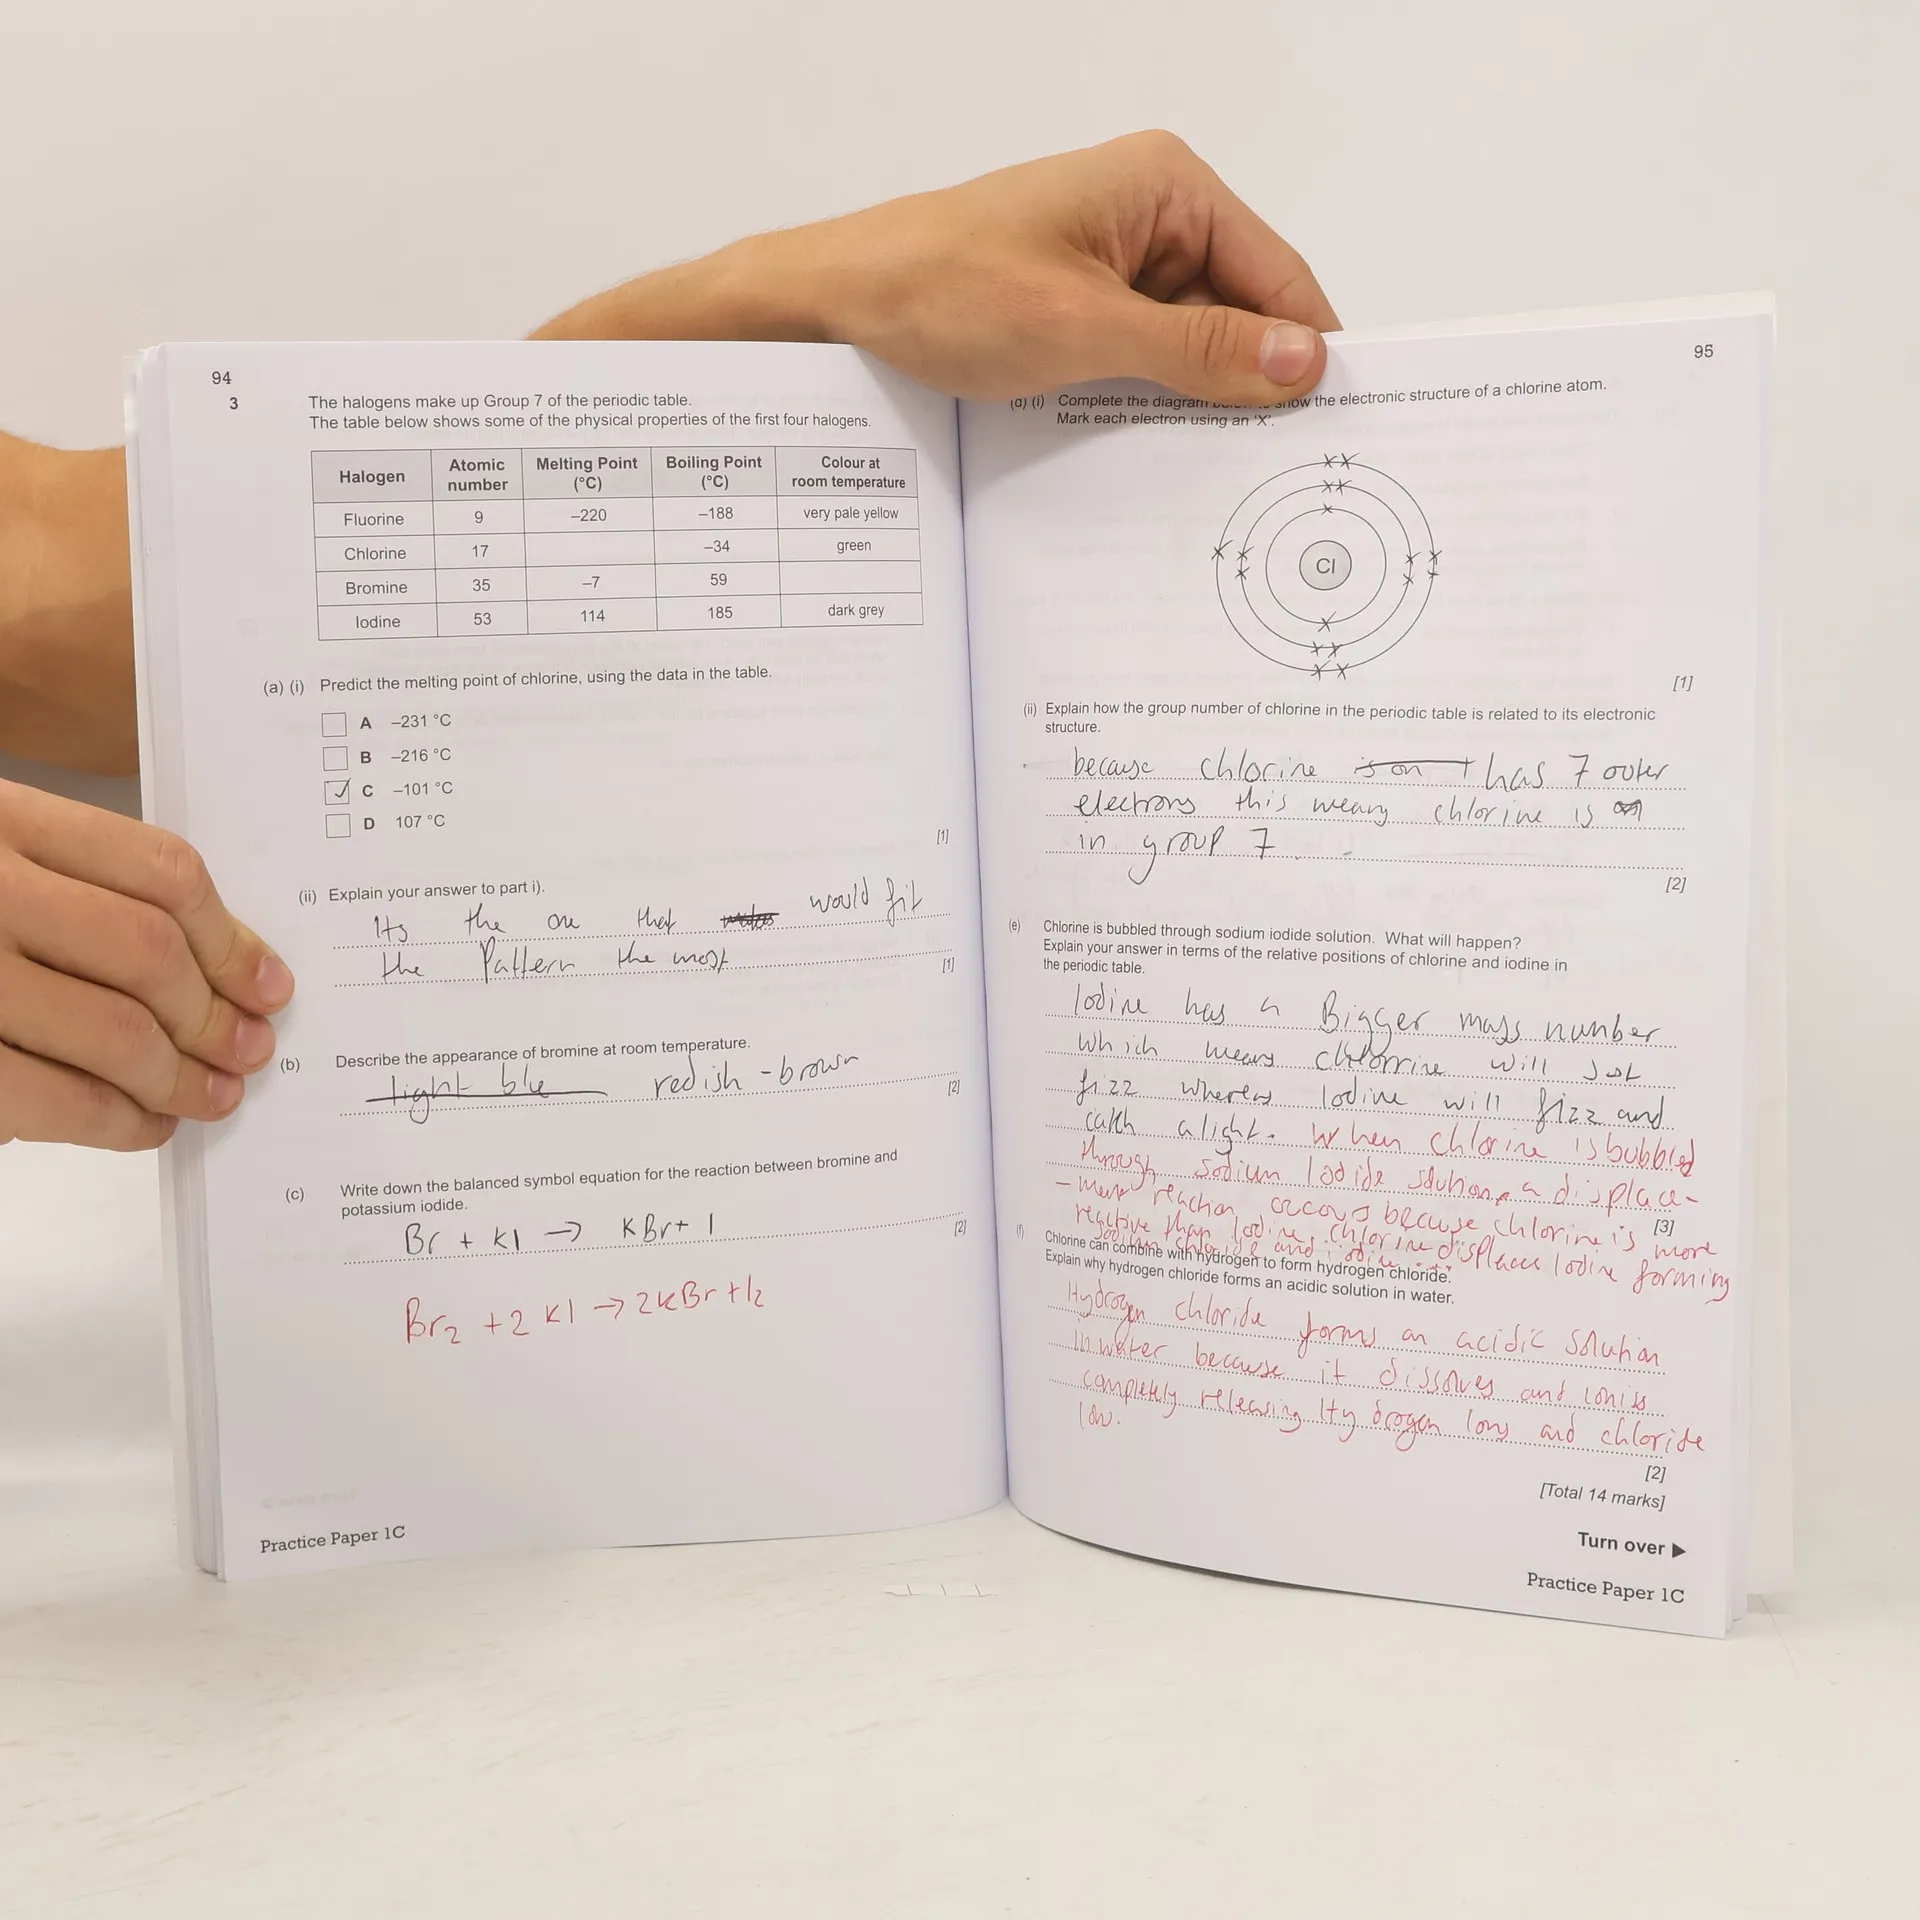 94
3
The halogens make up Group 7 of the periodic table.
The table below shows some of the physical properties of the first four halogens.
Halogen Atomic number Melting Point (°C) Boiling Point (°C) Colour at room temperature
Fluorine 9 –220 –188 very pale yellow
Chlorine 17 –34 green
Bromine 35 –7 59
Iodine 53 114 185 dark grey
(a) (i) Predict the melting point of chlorine, using the data in the table.
A –231 °C
B –216 °C
C –101 °C
D 107 °C
[1]
(ii) Explain your answer to part i).
Its the one that would fit
the Pattern the most
[1]
(b) Describe the appearance of bromine at room temperature.
light blue redish - brown
[2]
(c) Write down the balanced symbol equation for the reaction between bromine and
potassium iodide.
Br + KI → KBr + I
[2]
Br2 + 2 KI → 2KBr + I2
Practice Paper 1C
95
(d) (i) Complete the diagram show the electronic structure of a chlorine atom.
Mark each electron using an 'X'.
Cl
[1]
(ii) Explain how the group number of chlorine in the periodic table is related to its electronic
structure.
because chlorine is on t has 7 outer
electrons this means chlorine is
in group 7
[2]
(e) Chlorine is bubbled through sodium iodide solution. What will happen?
Explain your answer in terms of the relative positions of chlorine and iodine in
the periodic table.
Iodine has a Bigger mass number
which means chlorrine will Just
fizz whereas Iodine will fizz and
catch alight. When chlorine is bubbled
through sodium Iodide solution, a displace-
-ment reaction occurs because chlorine is more
[3]
reactive than Iodine. Chlorine displaces Iodine forming
sodium chloride and iodine
(f) Chlorine can combine with hydrogen to form hydrogen chloride.
Explain why hydrogen chloride forms an acidic solution in water.
Hydrogen chloride forms an acidic solution
in water because it dissolves and ioniss
completely releasing Hydrogen Ions and chloride
Ion.
[2]
[Total 14 marks]
Turn over ▶
Practice Paper 1C